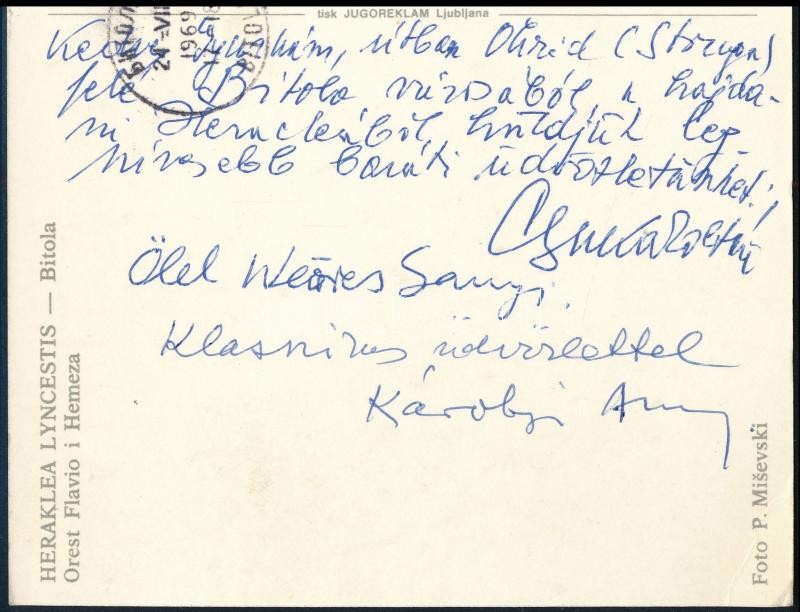 tisk JUGOREKLAM Ljubljana
24-VII
1969
18
Kedves útban Ohrid (Struga)
felé, Bitola városából, a hajda-
ni Heracleából küldjük leg
szívesebb baráti üdvözletünket!
Csuka Zoltán
Ölel Weöres Sanyi.
Klasszikus üdvözlettel
Károlyi Amy
HERAKLEA LYNCESTIS — Bitola
Orest Flavio i Hemeza
Foto P. Miševski